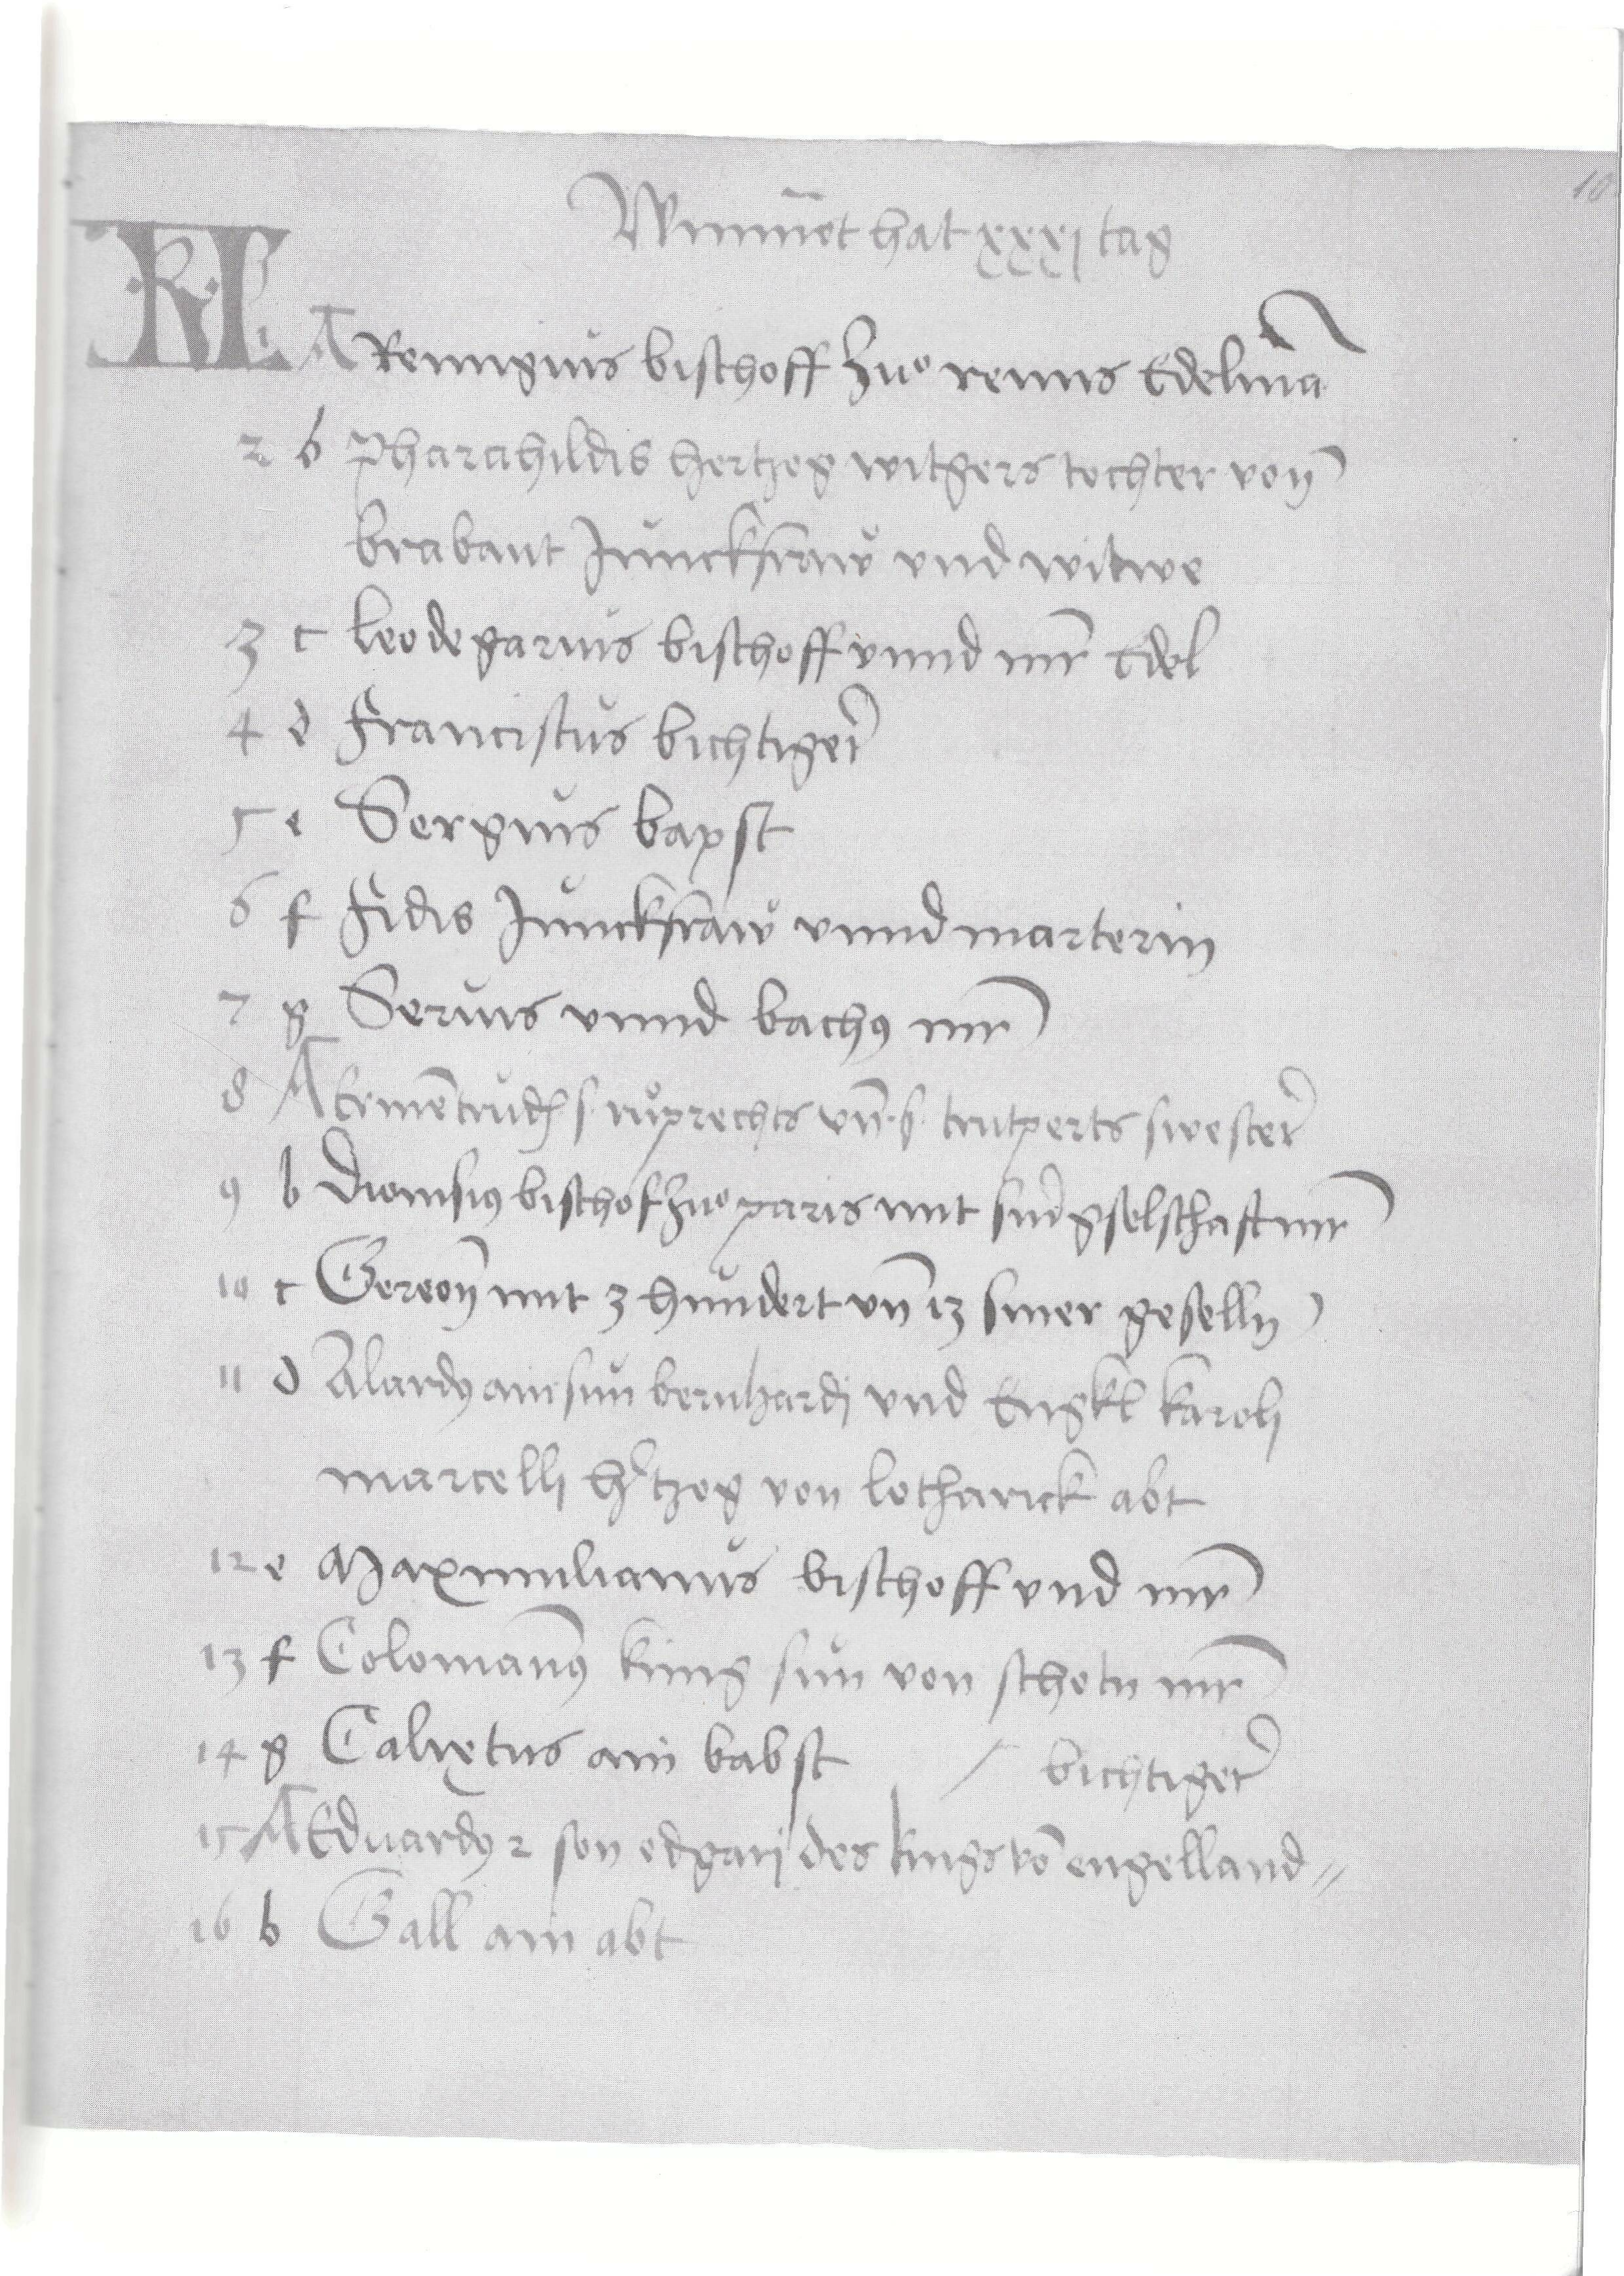 10
Wimmet hat xxxj tag
KL A Remigius bischoff zuo remis Edelmā
2 b Pharahildis hertzog witgers tochter von
brabant Junckfraw vnd witwe
3 c leodegarius bischoff vnnd mr Edel
4 d Franciscus bichtiger
5 e Sergius bapst
6 f Fidis Junckfraw vnnd marterin
7 g Seruis vnnd bachꝰ mr
8 A Ermētrudis s. ruoprechts vn̄ s. trutperts swester
9 b Dionisiꝰ bischof zuo paris mit sinr gselschaft mr
10 c Gereon mit 3 hundert vn̄ 13 siner geselln
11 d Alardꝰ ain sun bernhardj vnd Engkl karolj
marcellj hertzog von lotharick abt
12 e Maximilianus bischoff vnd mr
13 f Colomanꝰ king sun von schotn mr
14 g Calixtus ain babst / bichtiger
15 A Eduardꝰ 2 son edgarj des kings vō engelland //
16 b Gall ain abt